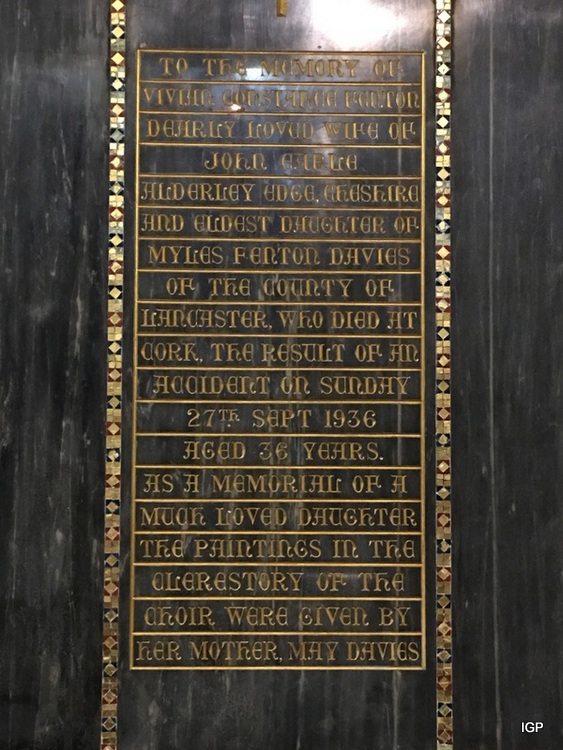 TO THE MEMORY OF
VIVIAN CONSTANCE FENTON
DEARLY LOVED WIFE OF
JOHN CABLE
ALDERLEY EDGE, CHESHIRE
AND ELDEST DAUGHTER OF
MYLES FENTON DAVIES
OF THE COUNTY OF
LANCASTER, WHO DIED AT
CORK, THE RESULT OF AN
ACCIDENT ON SUNDAY
27TH SEPT 1936
AGED 36 YEARS.
AS A MEMORIAL OF A
MUCH LOVED DAUGHTER
THE PAINTINGS IN THE
CLERESTORY OF THE
CHOIR WERE GIVEN BY
HER MOTHER, MAY DAVIES
IGP